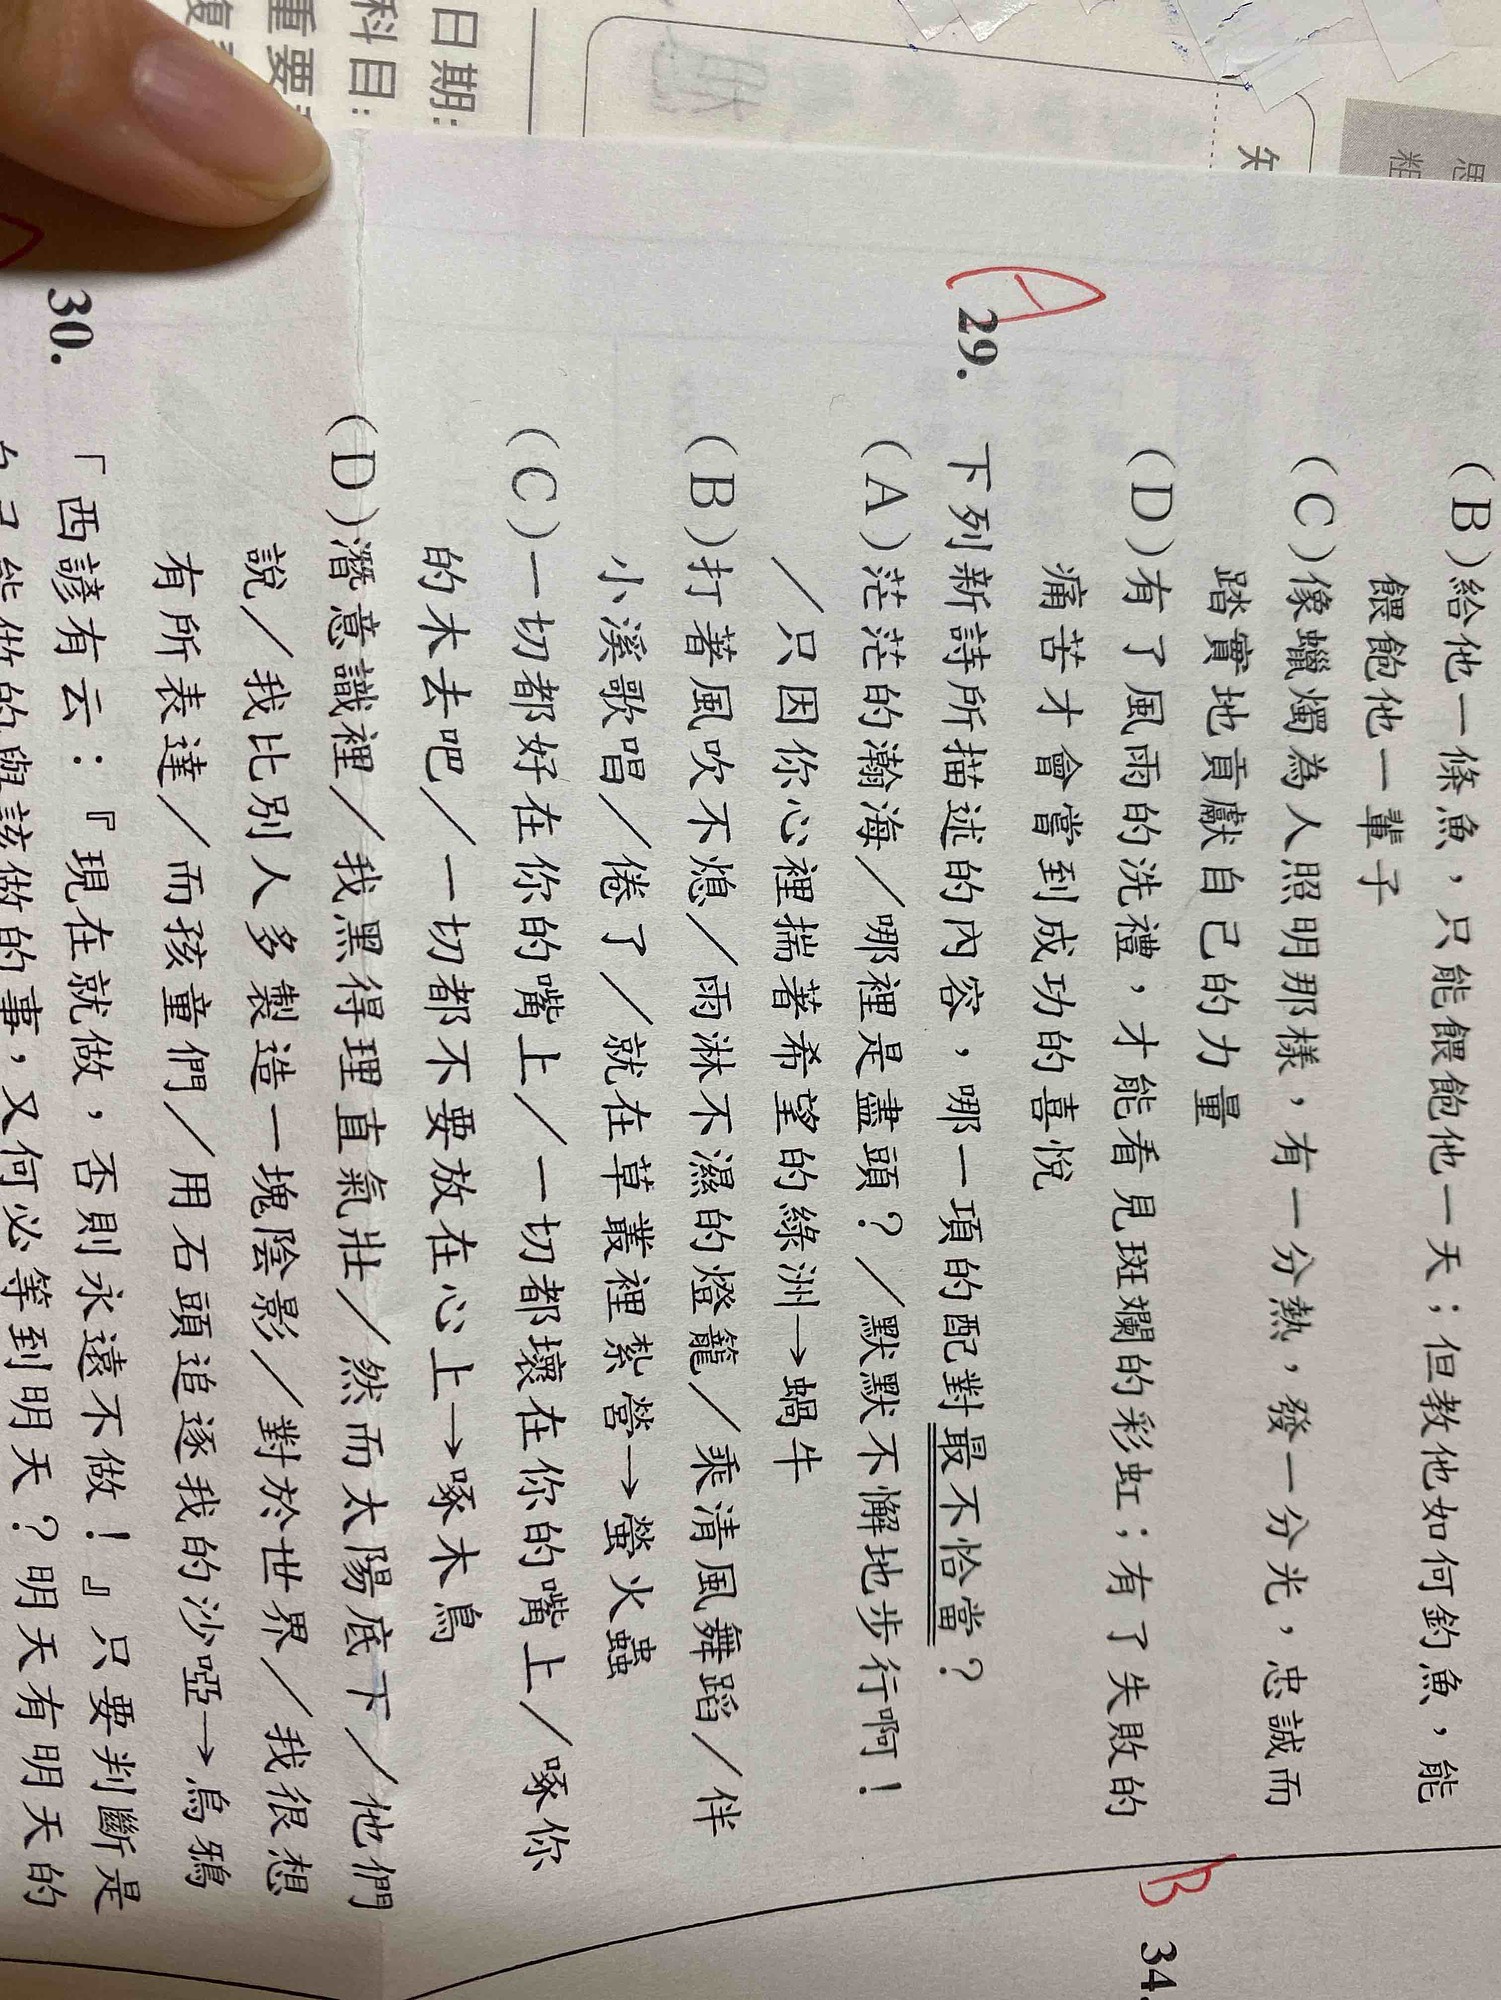 日期:
科目:
重要
（B）給他一條魚，只能餵飽他一天；但教他如何釣魚，能
餵飽他一輩子
（C）像蠟燭為人照明那樣，有一分熱，發一分光，忠誠而
踏實地貢獻自己的力量
（D）有了風雨的洗禮，才能看見斑斕的彩虹；有了失敗的
痛苦才會嘗到成功的喜悅
A
29. 下列新詩所描述的內容，哪一項的配對最不恰當？
（A）茫茫的瀚海／哪裡是盡頭？／默默不懈地步行啊！
／只因你心裡揣著希望的綠洲→蝸牛
（B）打著風吹不熄／雨淋不濕的燈籠／乘清風舞蹈／伴
小溪歌唱／倦了／就在草叢裡紮營→螢火蟲
（C）一切都好在你的嘴上／一切都壞在你的嘴上／啄你
的木去吧／一切都不要放在心上→啄木鳥
（D）潛意識裡／我黑得理直氣壯／然而太陽底下／他們
說／我比別人多製造一塊陰影／對於世界／我很想
有所表達／而孩童們／用石頭追逐我的沙啞→烏鴉
30. 「西諺有云：『現在就做，否則永遠不做！』只要判斷是
自己能做的與該做的事，又何必等到明天？明天有明天的
B
34.